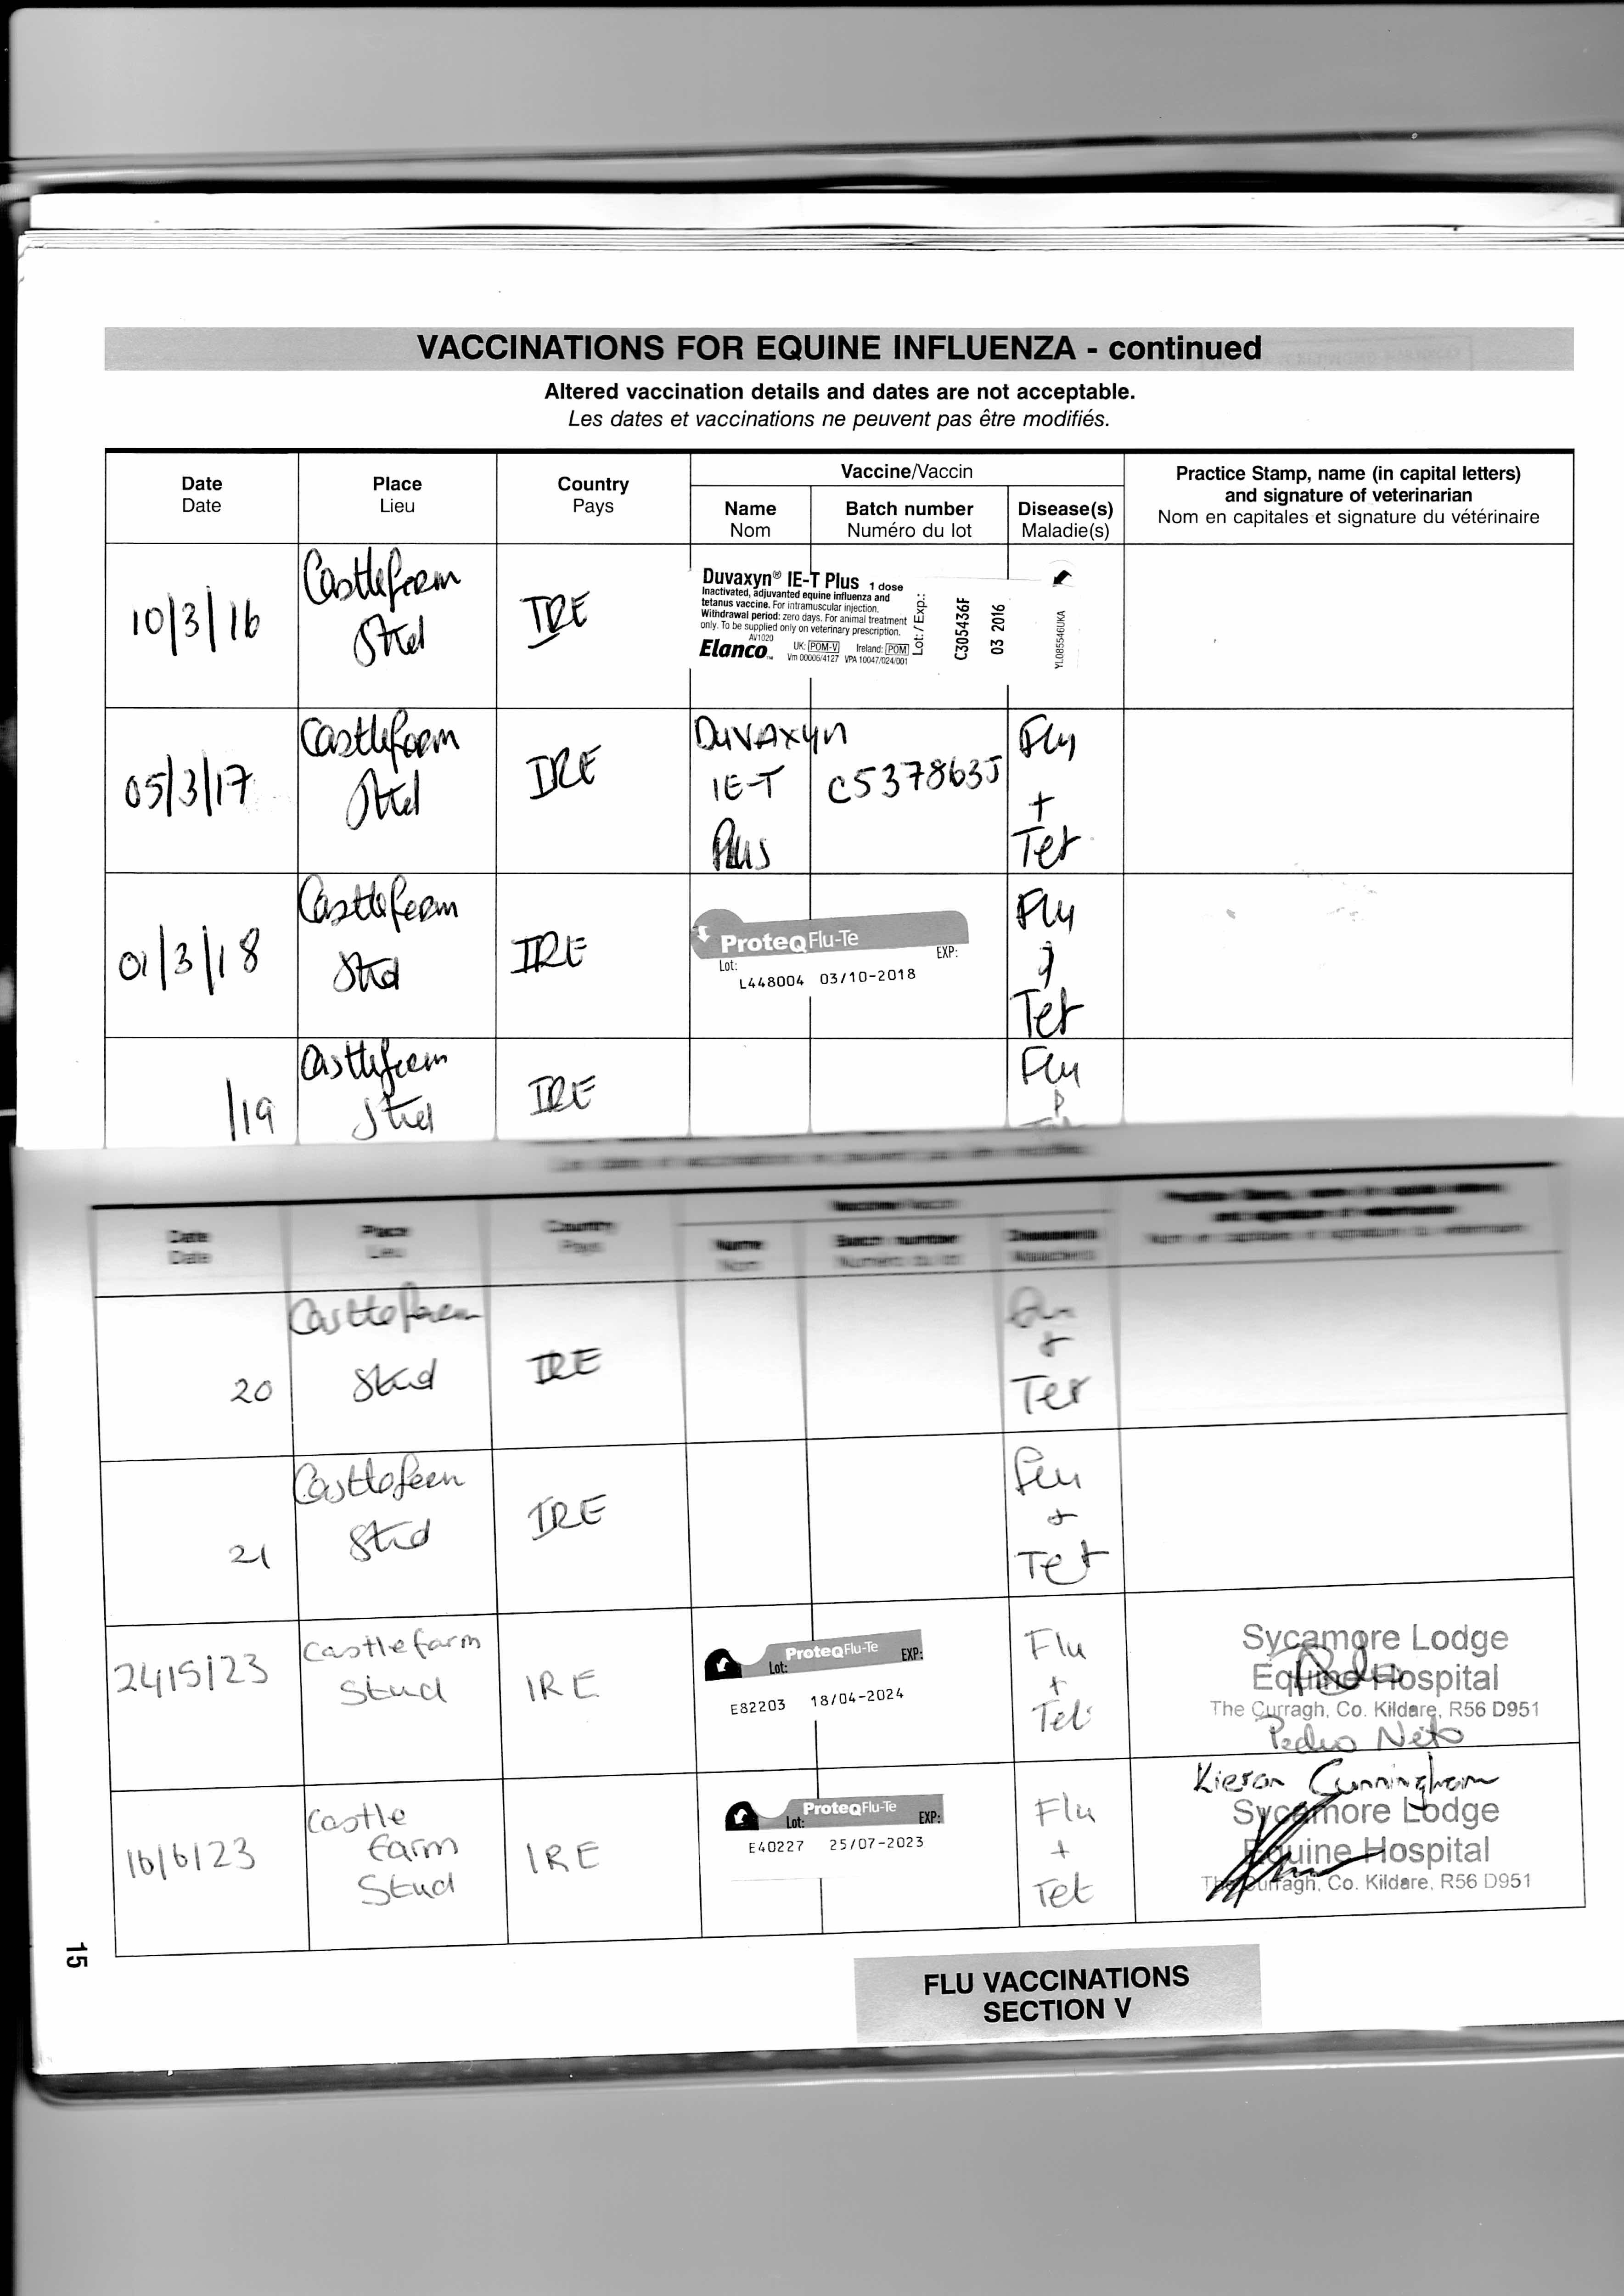 VACCINATIONS FOR EQUINE INFLUENZA - continued
Altered vaccination details and dates are not acceptable.
Les dates et vaccinations ne peuvent pas être modifiés.
Date
Date
Place
Lieu
Country
Pays
Vaccine/Vaccin
Name
Nom
Batch number
Numéro du lot
Disease(s)
Maladie(s)
Practice Stamp, name (in capital letters)
and signature of veterinarian
Nom en capitales et signature du vétérinaire
10/3/16
Castlefarm
Stud
IRE
Duvaxyn® IE-T Plus 1 dose
Inactivated, adjuvanted equine influenza and
tetanus vaccine. For intramuscular injection.
Withdrawal period: zero days. For animal treatment
only. To be supplied only on veterinary prescription.
AV1020
Elanco™ UK: POM-V Ireland: POM
Vm 00006/4127 VPA 10047/024/001
Lot: / Exp.:
C305436F
03 2016
YL085546UKA
05/3/17
Castlefarm
Stud
IRE
Duvaxyn
IE-T
Plus
C537863J
Flu
+
Tet
01/3/18
Castlefarm
Stud
IRE
ProteqFlu-Te
Lot: EXP:
L448004 03/10-2018
Flu
Tet
/19
Castlefarm
Stud
IRE
Flu
Date
Date
Place
Lieu
Country
Pays
Name
Nom
Batch number
Numéro du lot
20
Castlefarm
Stud
IRE
Tet
21
Castlefarm
Stud
IRE
Flu
+
Tet
24/5/23
Castlefarm
Stud
IRE
ProteqFlu-Te
Lot: EXP:
E82203 18/04-2024
Flu
+
Tet
Sycamore Lodge
Equine Hospital
The Curragh, Co. Kildare, R56 D951
Pedro Neto
16/6/23
Castle
farm
Stud
IRE
ProteqFlu-Te
Lot: EXP:
E40227 25/07-2023
Flu
+
Tet
Kieran Cunningham
Sycamore Lodge
Equine Hospital
The Curragh, Co. Kildare, R56 D951
15
FLU VACCINATIONS
SECTION V